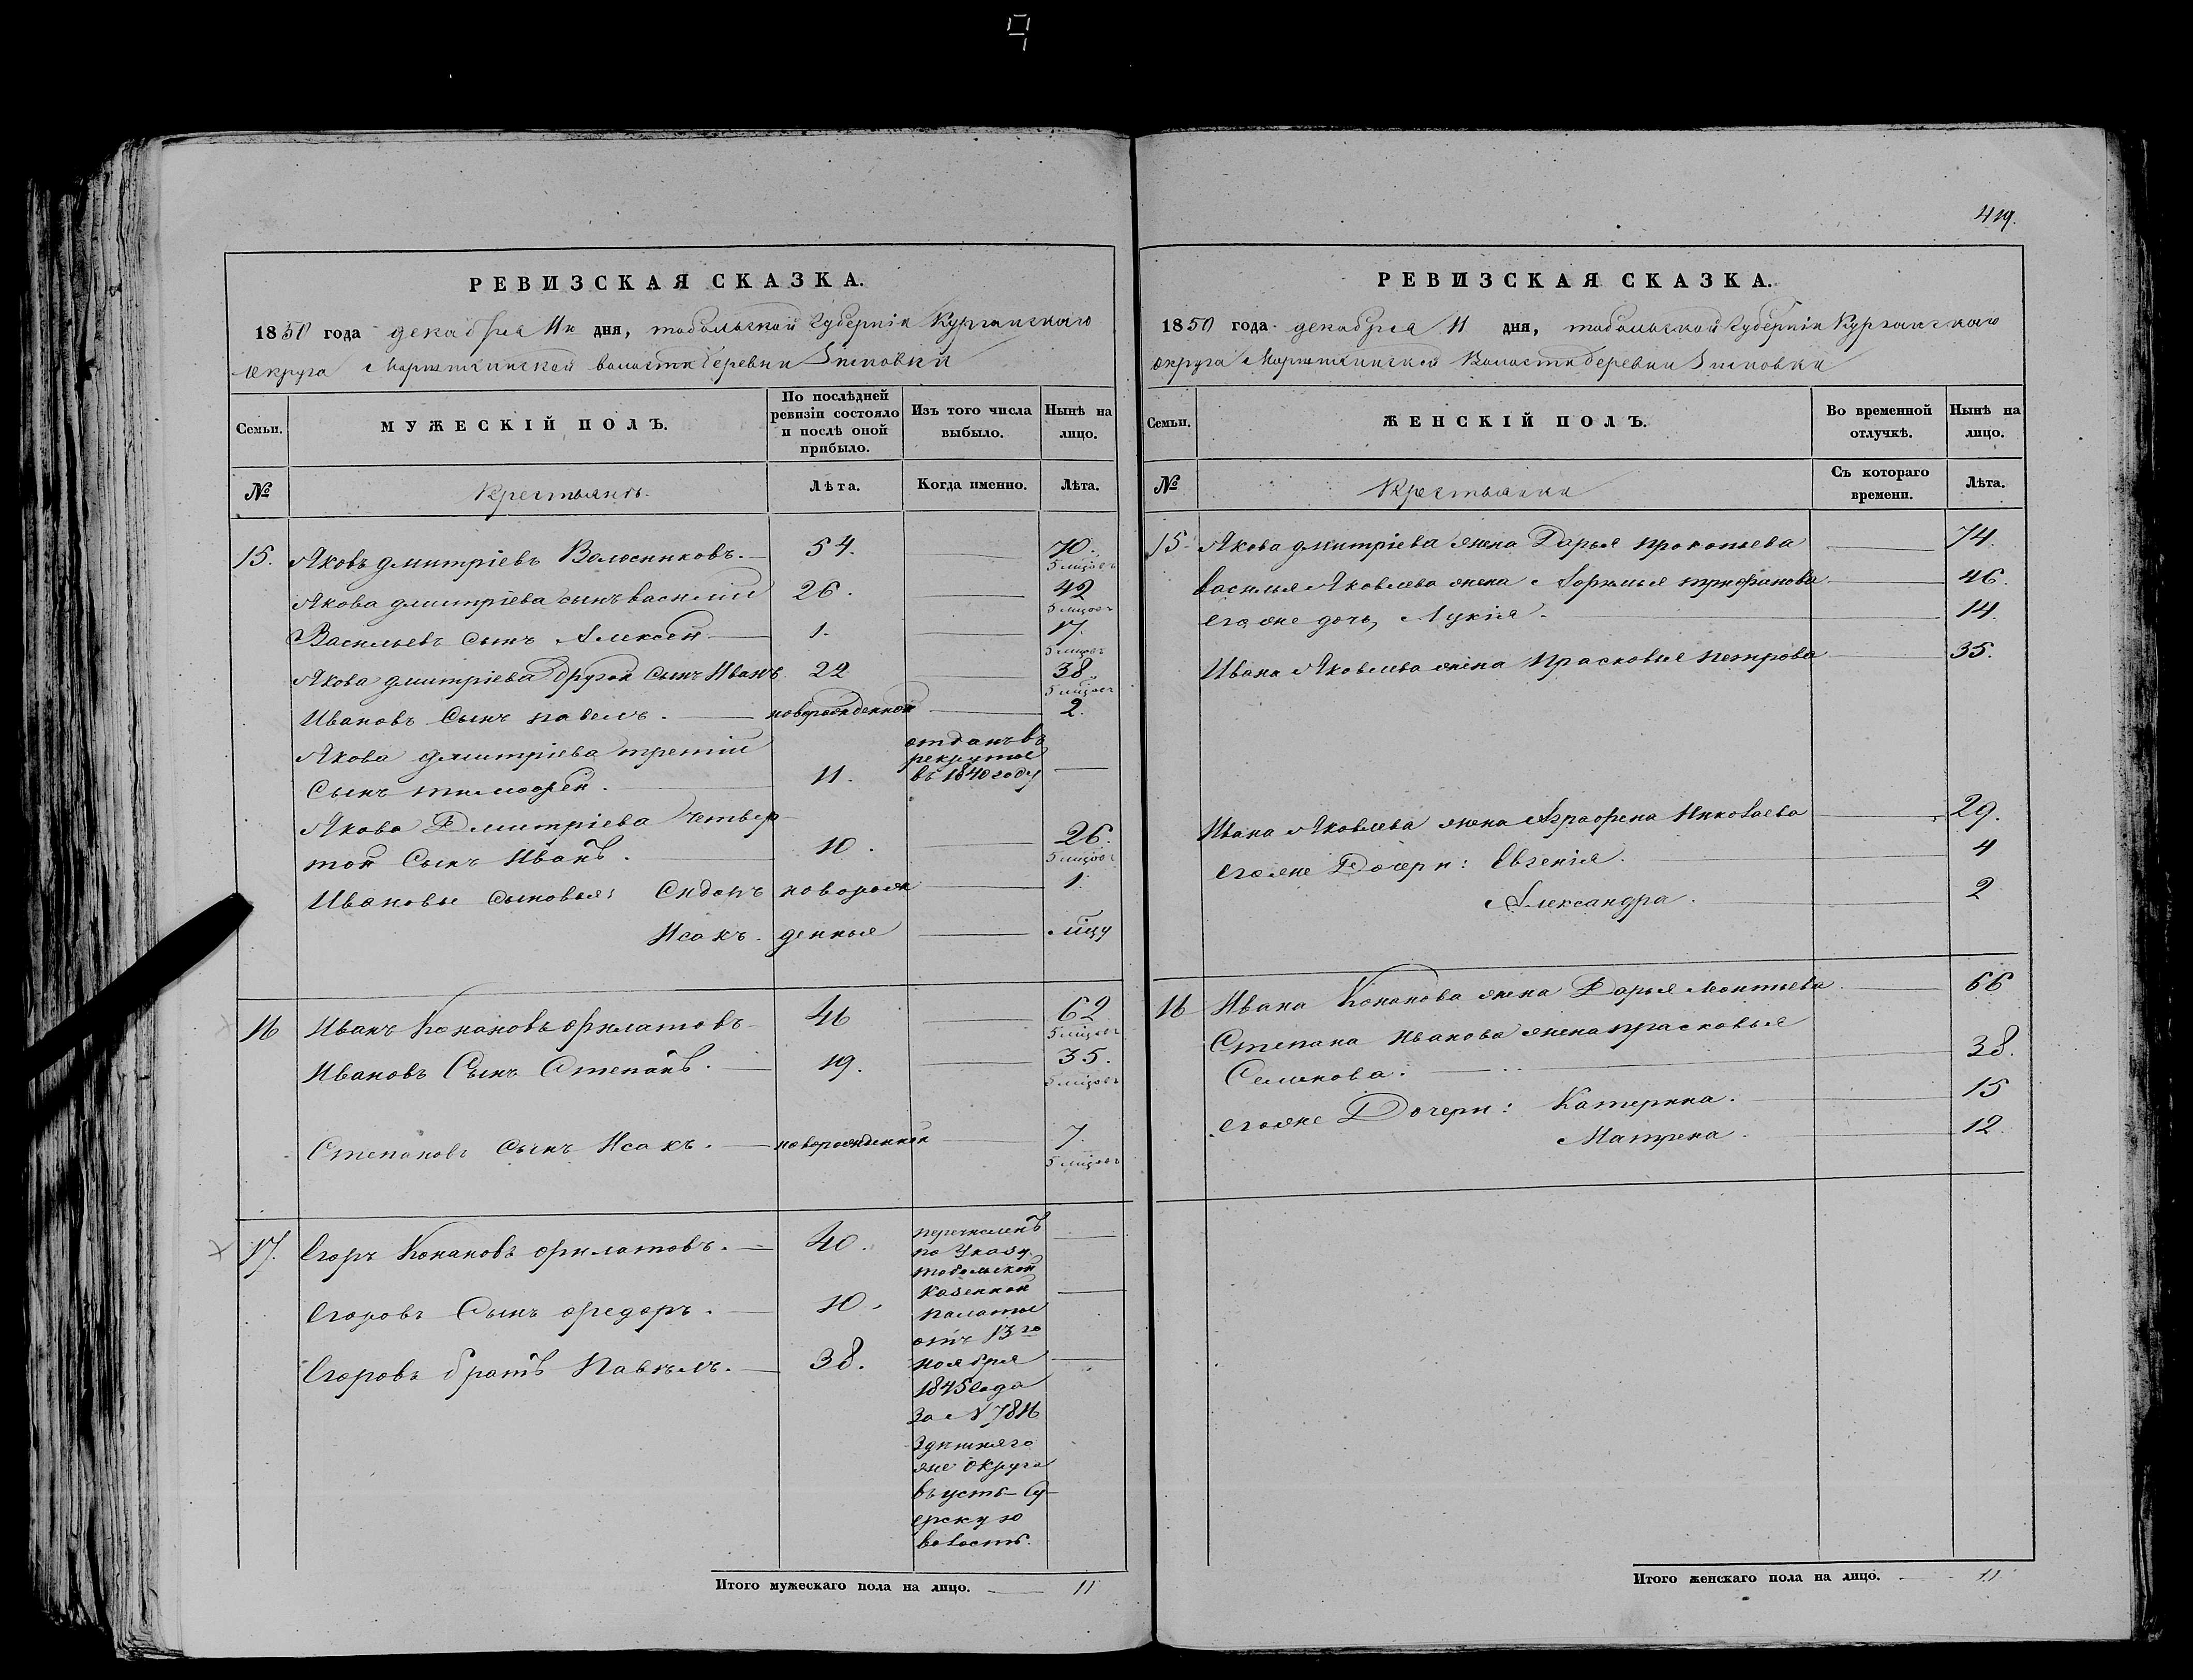 419.
РЕВИЗСКАЯ СКАЗКА.
1850 года декабря 11 дня, тобольской Губерніи Курганскаго
округа Марышкинской волости деревни
Семьи.
МУЖЕСКІЙ ПОЛЪ.
По послѣдней ревизіи состояло и послѣ оной прибыло.
Изъ того числа выбыло.
Нынѣ на лицо.
№
Крестьянъ.
Лѣта.
Когда именно.
Лѣта.
15. Яковъ дмитріевъ Волосниковъ. 54. 70. 5 мцовъ
Якова дмитріева сынъ василій 26. 42 5 мцовъ
Васильевъ сынъ Алексѣй 1. 17. 5 мцовъ
Якова дмитріева другой сынъ Иванъ 22 38. 5 мцовъ
Ивановъ сынъ павелъ. новорожденной 2.
Якова дмитріева третій
Сынъ тимофей. 11. отданъ въ рекруты въ 1840 году
Якова Дмитріева четвер
той Сынъ Иванъ. 10. 26. 5 мцовъ
Ивановы сыновья: Сидоръ новорож 1.
Исакъ. денные мцу
16 Иванъ Конановъ филатовъ 46 62. 5 мцовъ
Ивановъ Сынъ Степанъ. 19. 35. 5 мцовъ
Степановъ сынъ Исакъ. новорожденной 7. 5 мцовъ
17. Егоръ Конановъ филатовъ. 40.
Егоровъ Сынъ федоръ. 10.
Егоровъ братъ Павѣлъ. 38.
перечисленъ
по Указу
тобольской
Казенной
палаты
отъ 13го
ноября
1845 года
За N 7816
Здѣшняго
же округа
въ усть-Су-
ерскую
волость.
Итого мужескаго пола на лицо. 11
РЕВИЗСКАЯ СКАЗКА.
1850 года декабря 11 дня, тобольской Губерніи Курганскаго
округа Марышкинской Волости деревни
Семьи.
ЖЕНСКІЙ ПОЛЪ.
Во временной отлучкѣ.
Нынѣ на лицо.
№
Крестьянки
Съ котораго времени.
Лѣта.
15 Якова дмитріева жена Дарья прокопьева 74.
василья Яковлева жена трифанова 46.
егоже дочь, Лукія. 14.
Ивана Яковлева жена Прасковья петрова 35.
Ивана Яковлева жена Аграфена Николаева 29.
егоже Дочери: Евгенія. 4
Александра. 2
16 Ивана Конанова жена Дарья леонтьева 66
Степана Иванова жена прасковья
Семенова. 38.
егоже Дочери: Катерина. 15
Матрена. 12.
Итого женскаго пола на лицо. 11